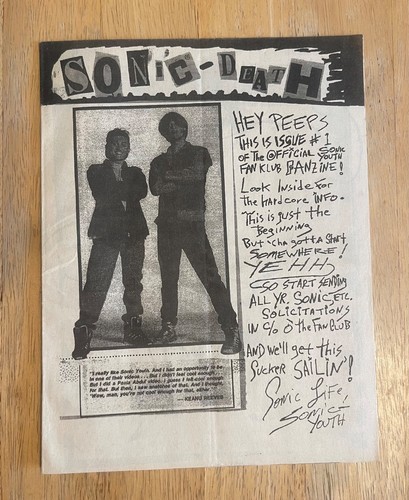 SONiC-DEATH
HEY PEEPS
THIS IS ISSUE #1
OF THE OFFICIAL SONIC YOUTH
FAN KLUB FANZINE!
Look Inside For
The hardcore INFO.
This is just the
Beginning
But 'cha gotta Start
SOMEWHERE!
YEHH,
SO START SENDING
ALL YR. SONIC, ETC.
SOLICITATIONS
IN c/o THE FAN CLUB
AND we'll get this
Sucker SAILIN'!
Sonic Life,
SONIC-
YOUTH
"I really like Sonic Youth. And I had an opportunity to be
in one of their videos . . . But I didn't feel cool enough.
But I did a Paula Abdul video. I guess I felt cool enough
for that. But then, I saw snatches of that. And I thought,
'Wow, man, you're not cool enough for that, either.'"
— KEANU REEVES